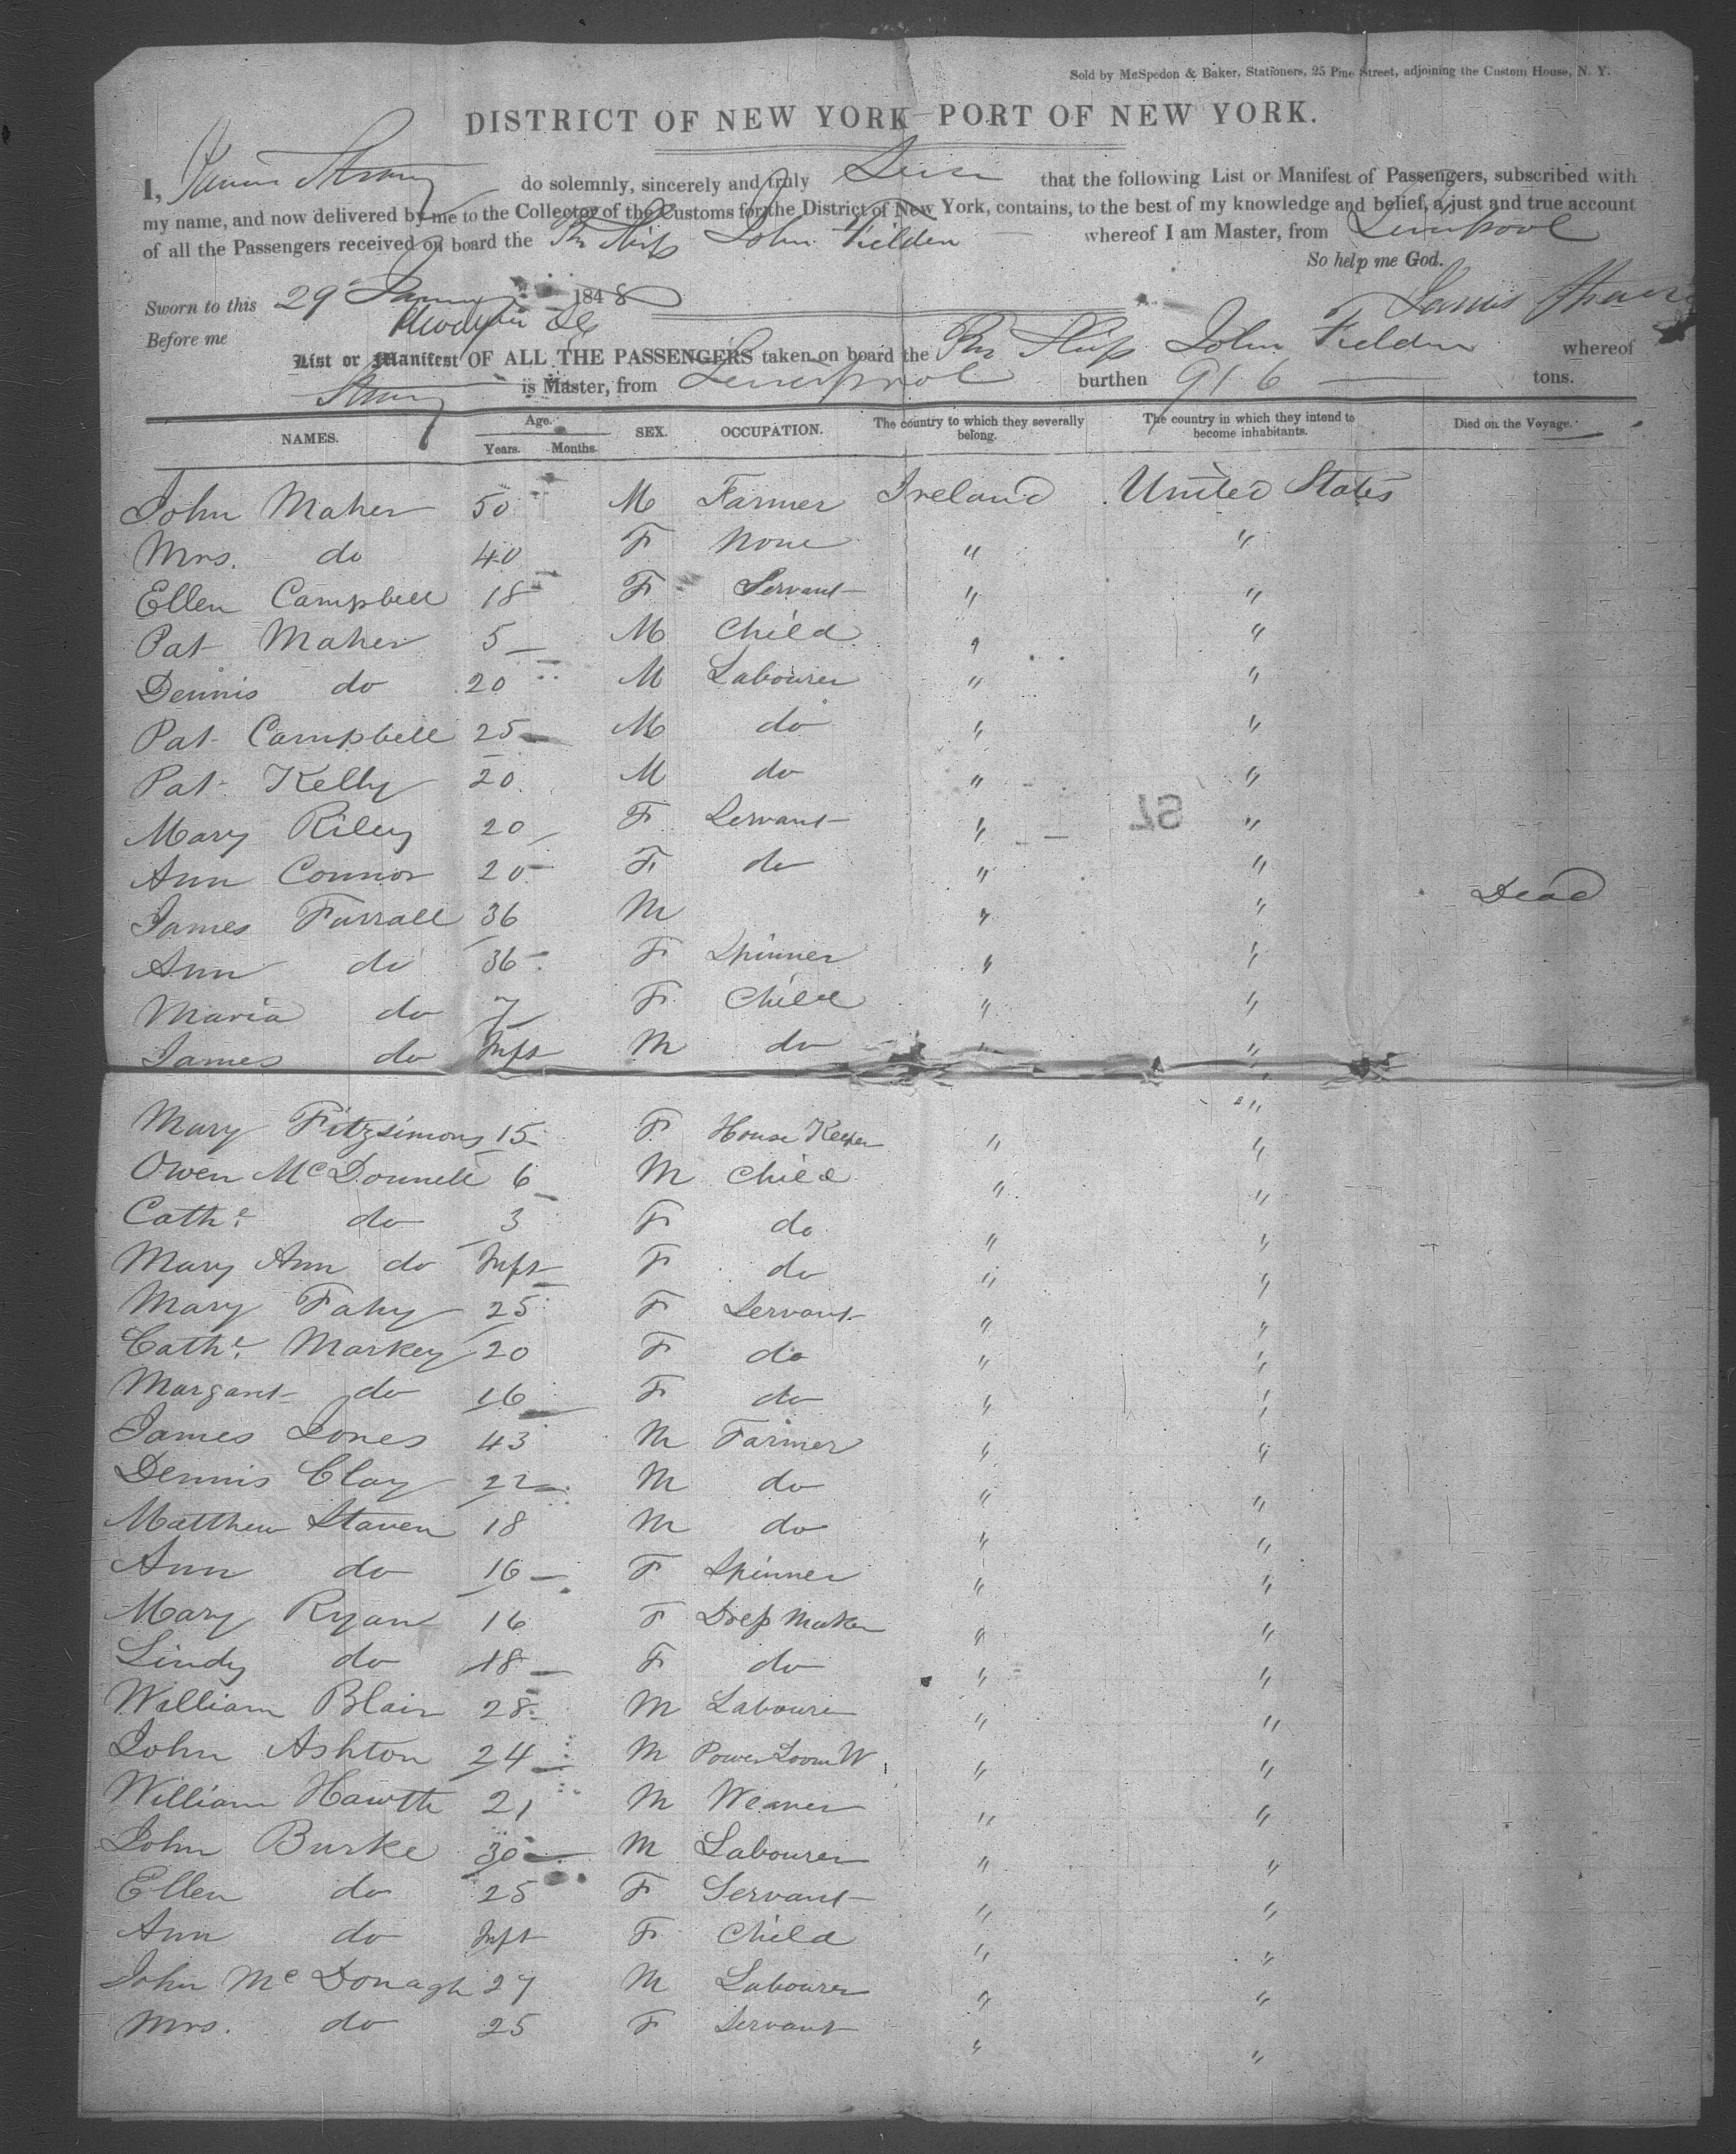 Sold by McSpedon & Baker, Stationers, 25 Pine Street, adjoining the Custom House, N. Y.
DISTRICT OF NEW YORK—PORT OF NEW YORK.
I, do solemnly, sincerely and truly that the following List or Manifest of Passengers, subscribed with
my name, and now delivered by me to the Collector of the Customs for the District of New York, contains, to the best of my knowledge and belief, a just and true account
of all the Passengers received on board the Ship John Fielden whereof I am Master, from Liverpool
So help me God.
Sworn to this 29 1848 James
Before me
List or Manifest OF ALL THE PASSENGERS taken on board the Ship John Fielden whereof
is Master, from Liverpool burthen 916 tons.
NAMES. Age. Years. Months. SEX. OCCUPATION. The country to which they severally belong. The country in which they intend to become inhabitants. Died on the Voyage.
John Maher 50 M Farmer Ireland United States
Mrs. do 40 F None " "
Ellen Campbell 18 F Servant " "
Pat Maher 5 M Child " "
Dennis do 20 M Labourer " "
Pat Campbell 25 M do " "
Pat Kelly 20 M do " "
Mary Riley 20 F Servant " "
Ann Connor 20 F do " "
James Farrall 36 M " " Dead
Ann do 36 F Spinner " "
Maria do 7 F Child " "
James do Inft M do " "
"
Mary Fitzsimons 15 F House Keeper " "
Owen McDonnell 6 M Child " "
Cathe. do 3 F do " "
Mary Ann do Inft F do " "
Mary Fahy 25 F Servant " "
Cathe. Markey 20 F do " "
Margaret do 16 F do " "
James Jones 43 M Farmer " "
Dennis Clay 22 M do " "
Matthew Staven 18 M do " "
Ann do 16 F Spinner " "
Mary Ryan 16 F Dress Maker " "
Lindy do 18 F do " "
William Blair 28 M Labourer " "
John Ashton 24 M Power Loom W " "
William Hawth 21 M Weaver " "
John Burke 30 M Labourer " "
Ellen do 25 F Servant " "
Ann do Inft F Child " "
John Mc Donagh 27 M Labourer " "
Mrs. do 25 F Servant " "